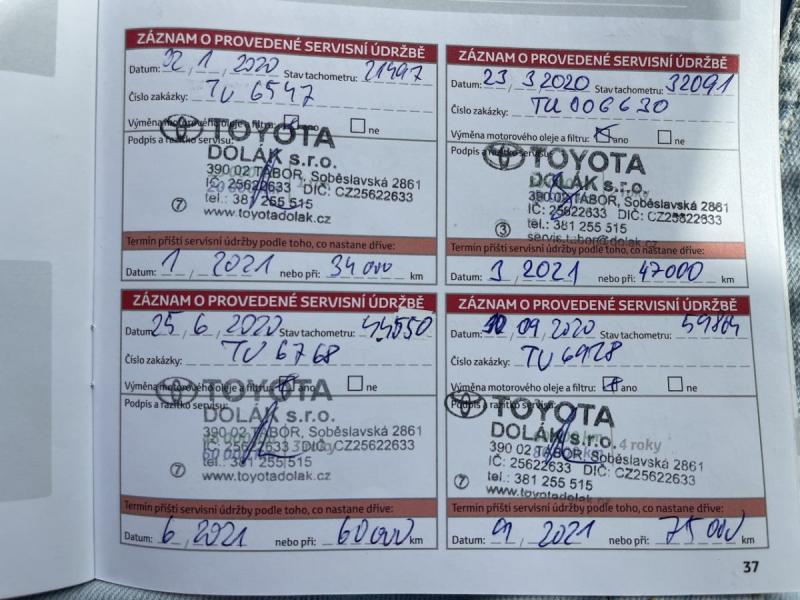 ZÁZNAM O PROVEDENÉ SERVISNÍ ÚDRŽBĚ
Datum: 22, 1, 2020 Stav tachometru: 21497
Číslo zakázky: TU 6547
Výměna motorového oleje a filtru: ano ne
Podpis a razítko servisu:
TOYOTA
DOLÁK s.r.o.
390 02 TÁBOR, Soběslavská 2861
IČ: 25622633 DIČ: CZ25622633
tel.: 381 255 515
www.toyotadolak.cz
7
Termín příští servisní údržby podle toho, co nastane dříve:
Datum: 1, 2021 nebo při: 34 000 km
ZÁZNAM O PROVEDENÉ SERVISNÍ ÚDRŽBĚ
Datum: 23, 3, 2020 Stav tachometru: 32091
Číslo zakázky: TU006630
Výměna motorového oleje a filtru: ano ne
Podpis a razítko servisu:
TOYOTA
DOLÁK s.r.o.
390 02 TÁBOR, Soběslavská 2861
IČ: 25622633 DIČ: CZ25622633
tel.: 381 255 515
servis.tabor@dolak.cz
3
Termín příští servisní údržby podle toho, co nastane dříve:
Datum: 3, 2021 nebo při: 47000 km
ZÁZNAM O PROVEDENÉ SERVISNÍ ÚDRŽBĚ
Datum: 25, 6, 2020 Stav tachometru: 44550
Číslo zakázky: TU 6768
Výměna motorového oleje a filtru: ano ne
Podpis a razítko servisu:
TOYOTA
DOLÁK s.r.o.
390 02 TÁBOR, Soběslavská 2861
IČ: 25622633 DIČ: CZ25622633
tel.: 381 255 515
www.toyotadolak.cz
7
Termín příští servisní údržby podle toho, co nastane dříve:
Datum: 6, 2021 nebo při: 60 000 km
ZÁZNAM O PROVEDENÉ SERVISNÍ ÚDRŽBĚ
Datum: 09, 2020 Stav tachometru: 59864
Číslo zakázky: TU 6928
Výměna motorového oleje a filtru: ano ne
Podpis a razítko servisu:
TOYOTA
DOLÁK s.r.o.
4 roky
390 02 TÁBOR, Soběslavská 2861
IČ: 25622633 DIČ: CZ25622633
tel.: 381 255 515
www.toyotadolak.cz
7
Termín příští servisní údržby podle toho, co nastane dříve:
Datum: 2021 nebo při: 75 000 km
37